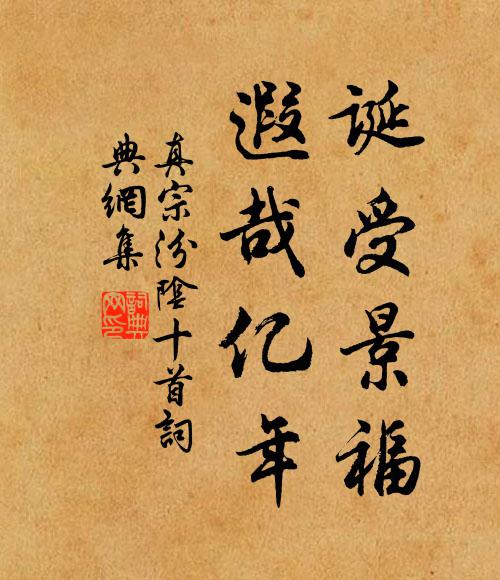 诞受景福
遐哉亿年
真宗汾陰十首詞
典網集
詞典网印